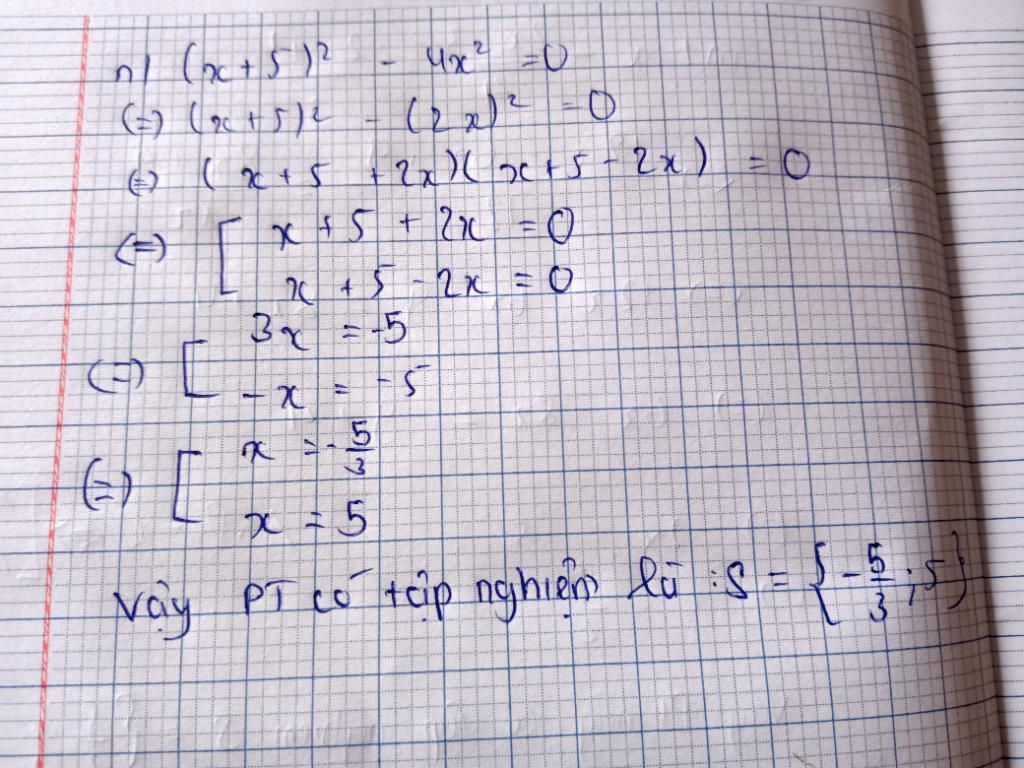 n) (x+5)² - 4x² = 0
(=) (x+5)² - (2x)² = 0
(=) (x+5 +2x)(x+5-2x) = 0
(=) [ x+5+2x = 0
x+5-2x = 0
(=) [ 3x = -5
-x = -5
(=) [ x = -5/3
x = 5
Vậy PT có tập nghiệm là : S = {-5/3 ; 5}